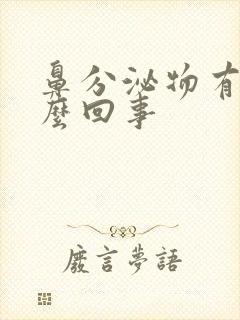 鼻分泌物有
麼回事
廢言夢語